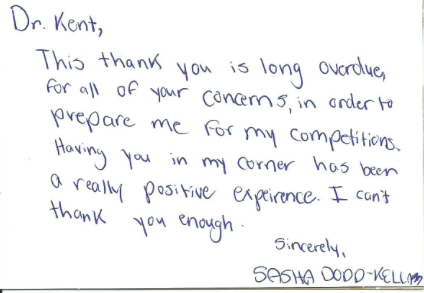 Dr. Kent,
This thank you is long overdue,
for all of your concerns, in order to
prepare me for my competitions.
Having you in my corner has been
a really positive expeirence. I can't
thank you enough.
Sincerely,
SASHA DODD-